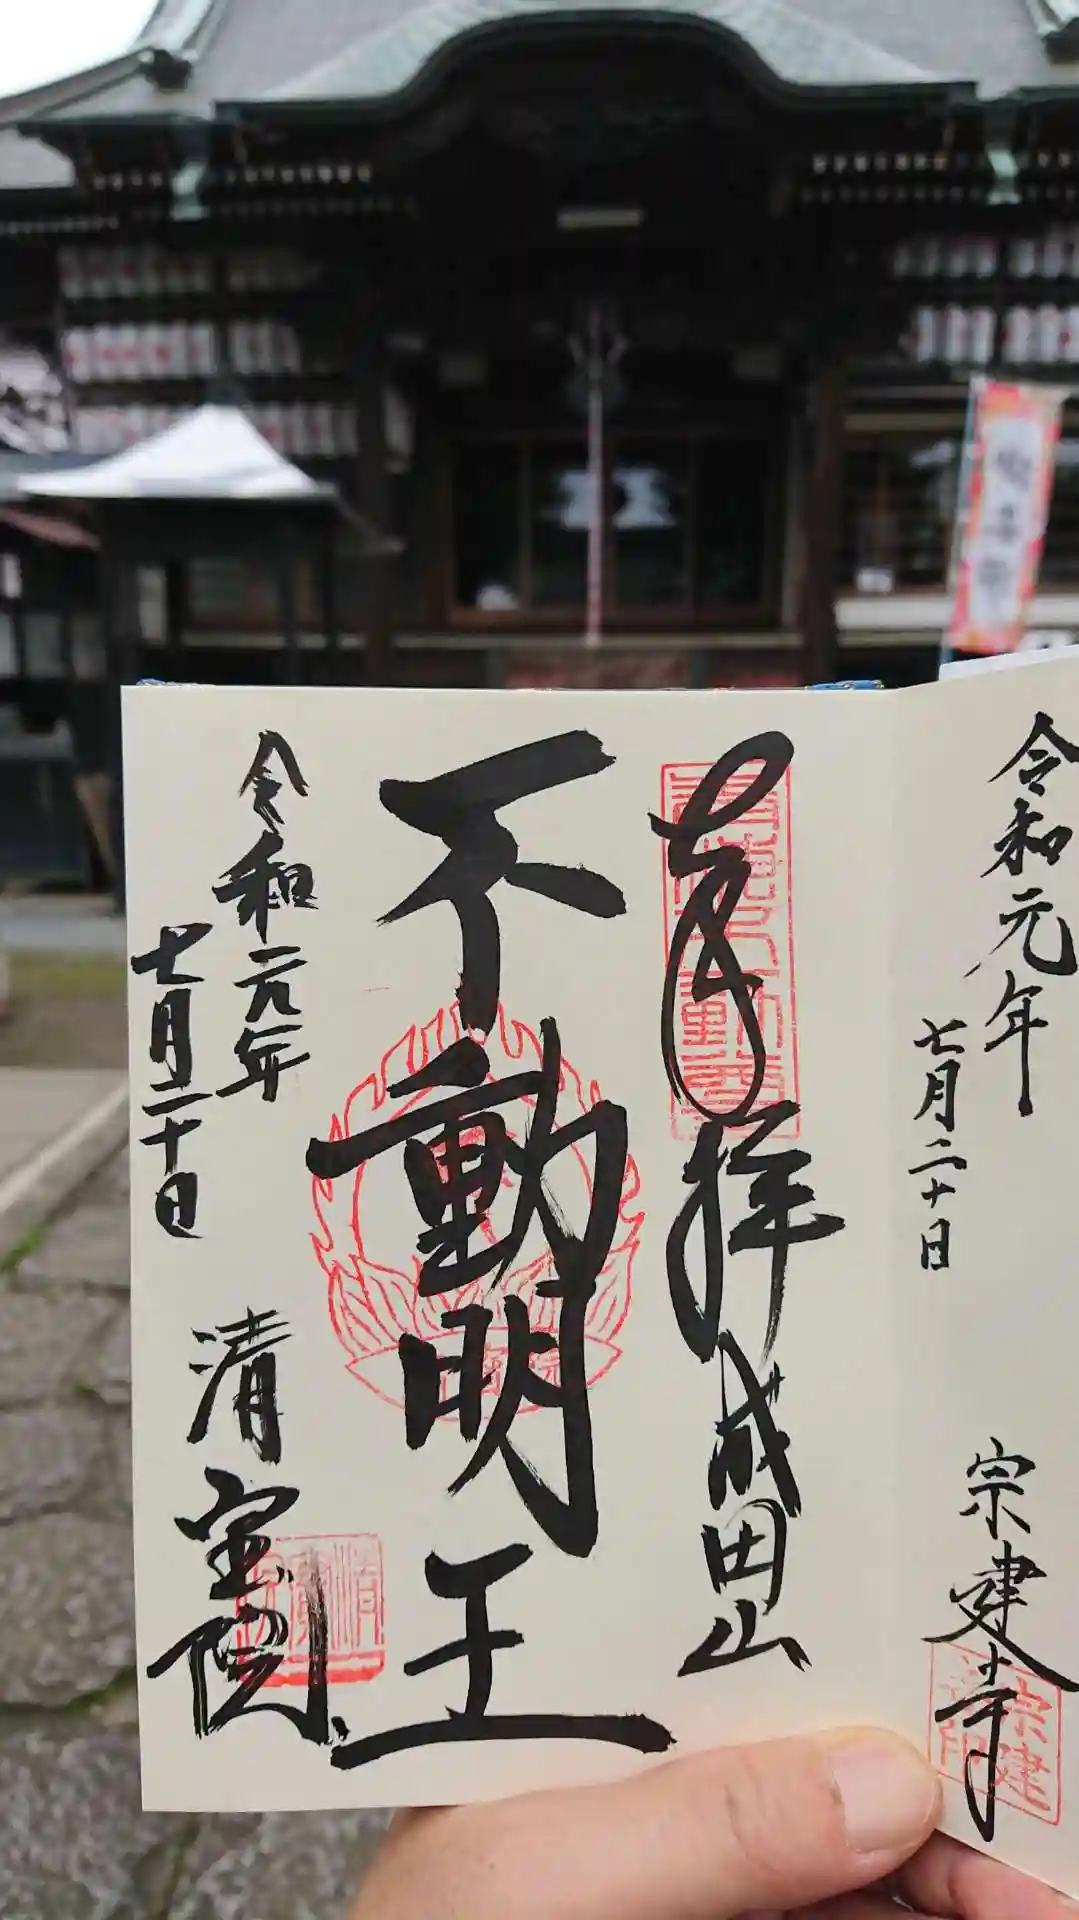 令和元年
七月二十日
宗建寺
宗建
奉拝 成田山
不動明王
令和元年
七月二十日
清宝院